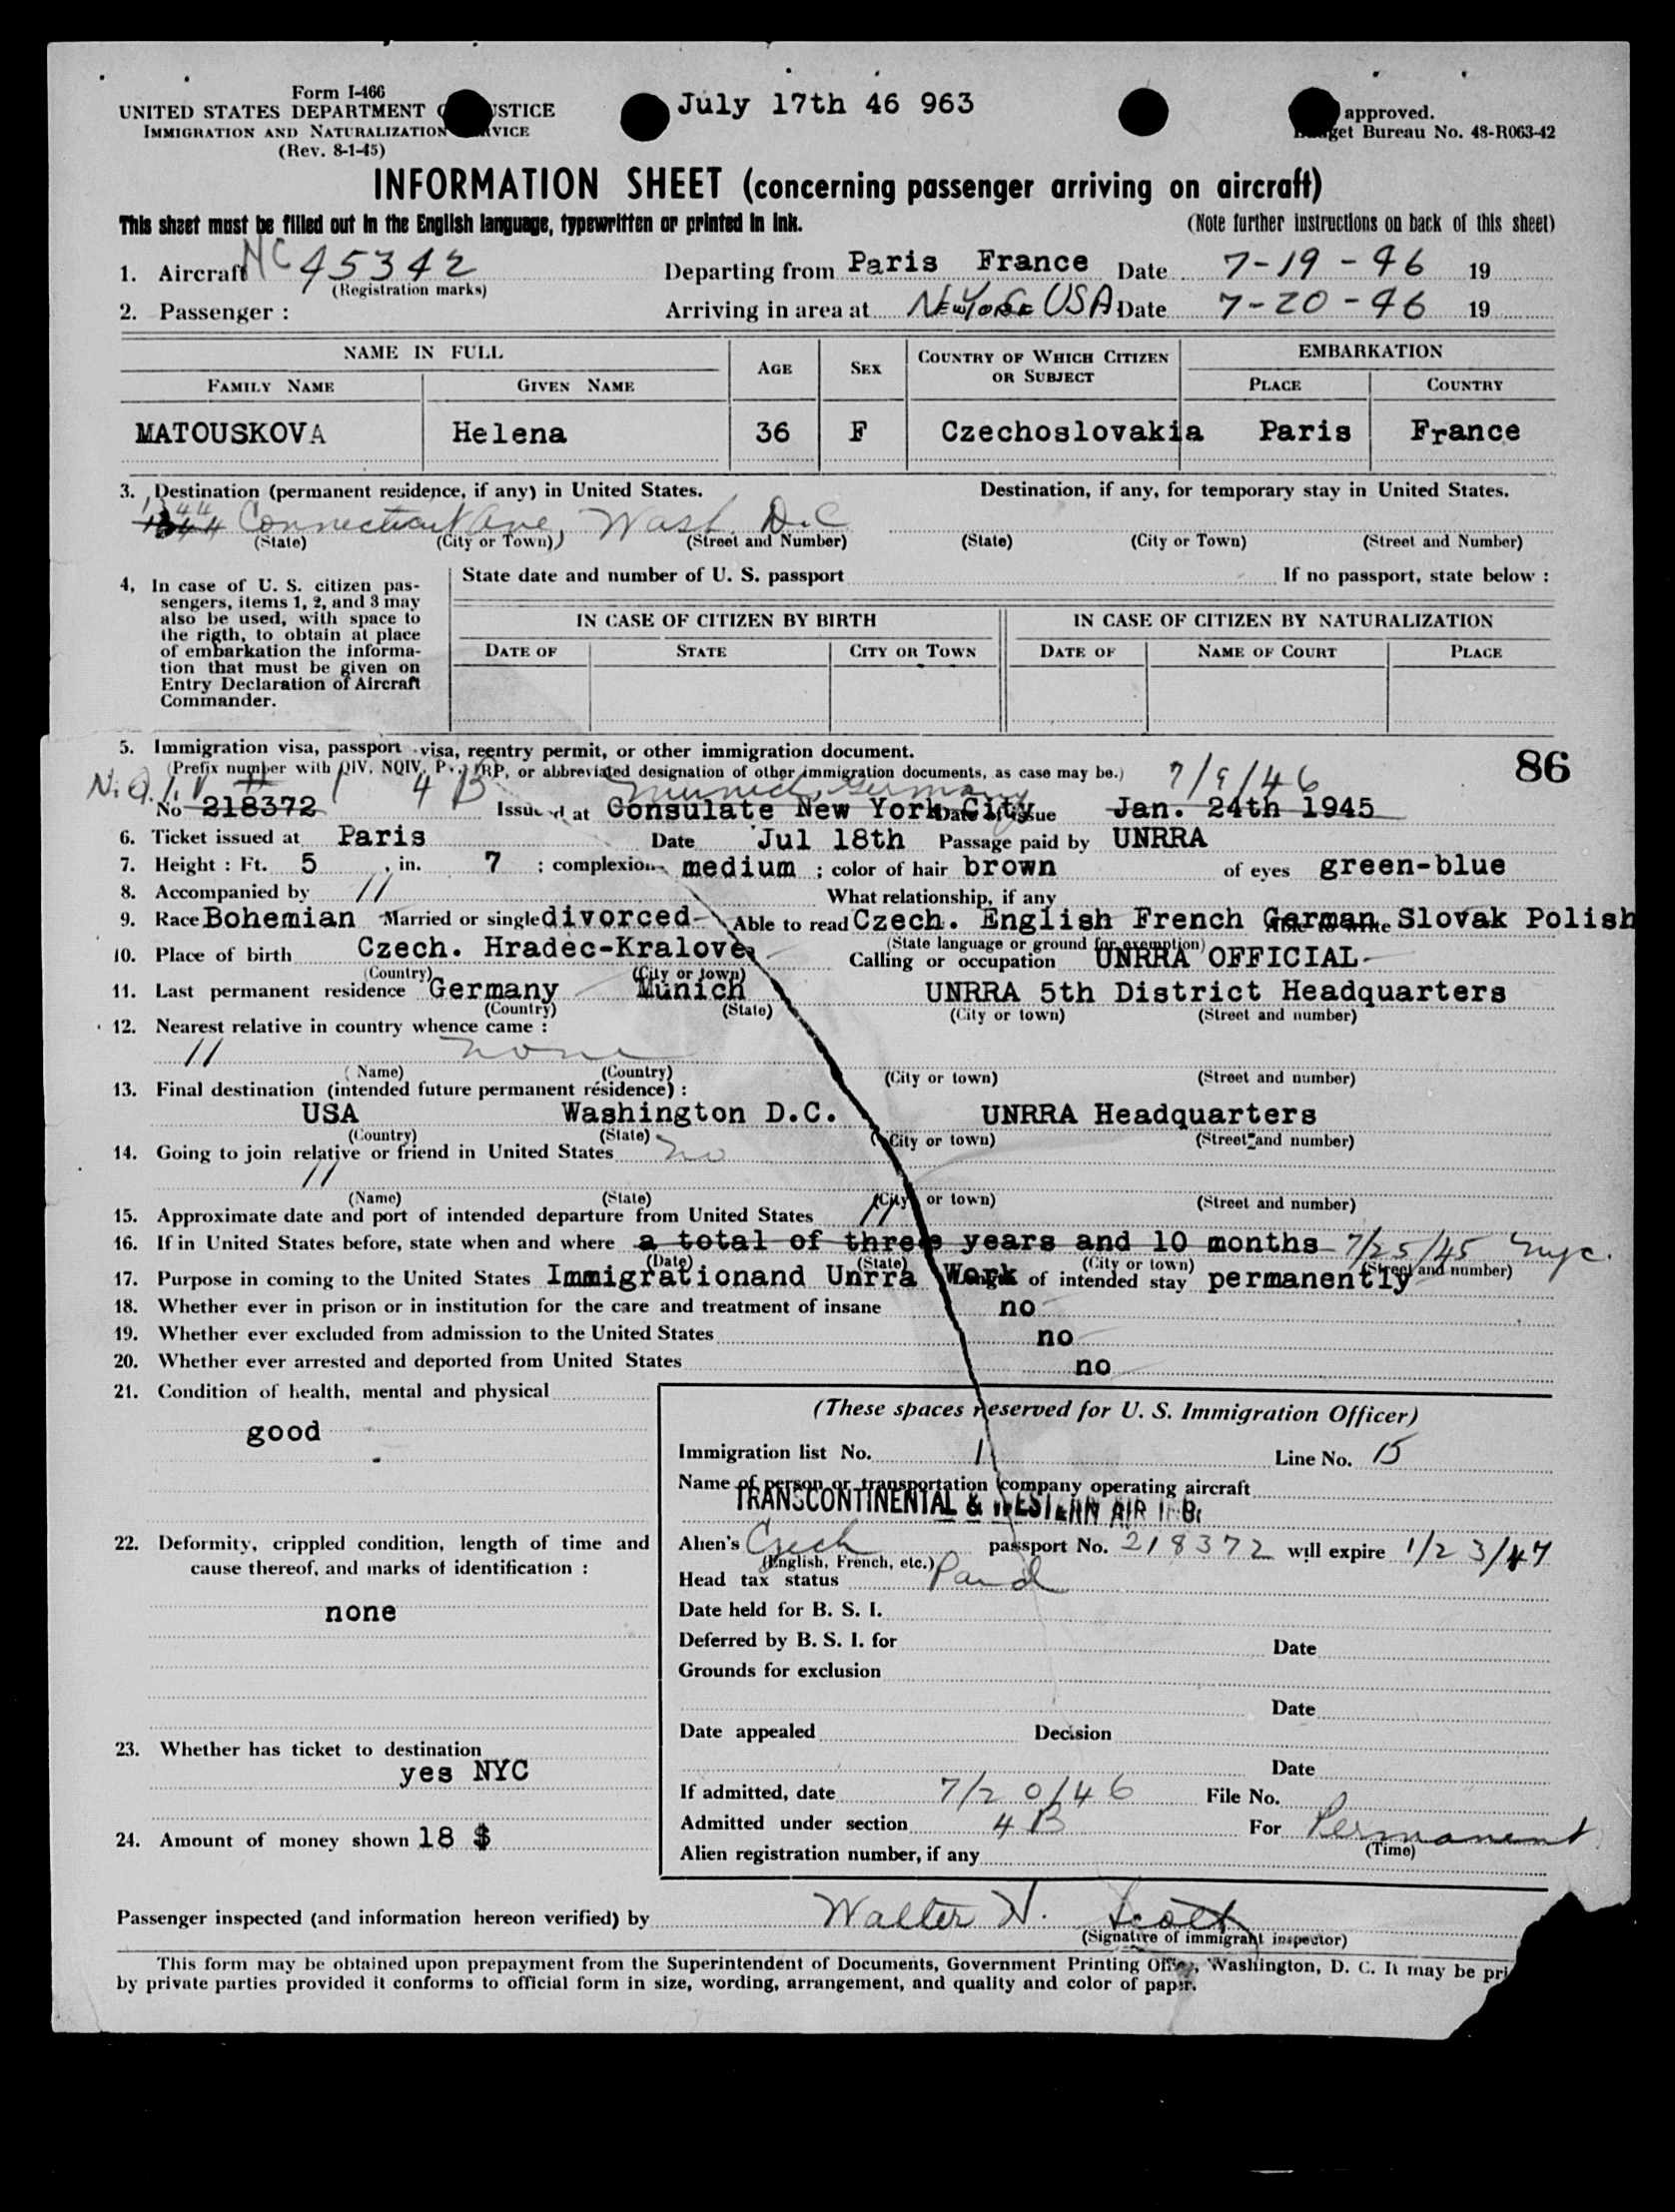 Form I-466
UNITED STATES DEPARTMENT JUSTICE
IMMIGRATION AND NATURALIZATION SERVICE
(Rev. 8-1-45)
July 17th 46 963
approved.
Budget Bureau No. 48-R063-42
INFORMATION SHEET (concerning passenger arriving on aircraft)
This sheet must be filled out in the English language, typewritten or printed in ink. (Note further instructions on back of this sheet)
1. Aircraft NC 45342 Departing from Paris France Date 7-19-46 19
(Registration marks)
2. Passenger : Arriving in area at New York USA Date 7-20-46 19
NAME IN FULL AGE SEX COUNTRY OF WHICH CITIZEN OR SUBJECT EMBARKATION
FAMILY NAME GIVEN NAME PLACE COUNTRY
MATOUSKOVA Helena 36 F Czechoslovakia Paris France
3. Destination (permanent residence, if any) in United States. Destination, if any, for temporary stay in United States.
1344 Connecticut Ave, Wash. D.C
(State) (City or Town) (Street and Number) (State) (City or Town) (Street and Number)
4, In case of U. S. citizen passengers, items 1, 2, and 3 may also be used, with space to the rigth, to obtain at place of embarkation the information that must be given on Entry Declaration of Aircraft Commander.
State date and number of U. S. passport If no passport, state below :
IN CASE OF CITIZEN BY BIRTH IN CASE OF CITIZEN BY NATURALIZATION
DATE OF STATE CITY OR TOWN DATE OF NAME OF COURT PLACE
5. Immigration visa, passport visa, reentry permit, or other immigration document.
86
(Prefix number with QIV, NQIV, P.V., RP, or abbreviated designation of other immigration documents, as case may be.)
N.Q.I.V 4 B Munich, Germany 7/9/46
No 218372 Issued at Consulate New York City Date of issue Jan. 24th 1945
6. Ticket issued at Paris Date Jul 18th Passage paid by UNRRA
7. Height : Ft. 5 , in. 7 ; complexion medium ; color of hair brown of eyes green-blue
8. Accompanied by // What relationship, if any
9. Race Bohemian Married or single divorced Able to read Czech. English French German Slovak Polish
(State language or ground for exemption)
10. Place of birth Czech. Hradec-Kralove Calling or occupation UNRRA OFFICIAL
(Country) (City or town)
11. Last permanent residence Germany Munich UNRRA 5th District Headquarters
(Country) (State) (City or town) (Street and number)
12. Nearest relative in country whence came :
// none
(Name) (Country) (City or town) (Street and number)
13. Final destination (intended future permanent résidence) :
USA Washington D.C. UNRRA Headquarters
(Country) (State) (City or town) (Street and number)
14. Going to join relative or friend in United States no
//
(Name) (State) (City or town) (Street and number)
15. Approximate date and port of intended departure from United States //
16. If in United States before, state when and where a total of three years and 10 months 7/25/45 nyc.
(Date) (State) (City or town) (Street and number)
17. Purpose in coming to the United States Immigrationand Unrra Work Length of intended stay permanently
18. Whether ever in prison or in institution for the care and treatment of insane no
19. Whether ever excluded from admission to the United States no
20. Whether ever arrested and deported from United States no
21. Condition of health, mental and physical
good
22. Deformity, crippled condition, length of time and cause thereof, and marks of identification :
none
23. Whether has ticket to destination
yes NYC
24. Amount of money shown 18 $
(These spaces reserved for U. S. Immigration Officer)
Immigration list No. 1 Line No. 15
Name of person or transportation company operating aircraft
TRANSCONTINENTAL & WESTERN AIR
Alien's Czech passport No. 218372 will expire 1/23/47
(English, French, etc.)
Head tax status Paid
Date held for B. S. I.
Deferred by B. S. I. for Date
Grounds for exclusion
Date
Date appealed Decision
Date
If admitted, date 7/20/46 File No.
Admitted under section 4 B For Permanent
(Time)
Alien registration number, if any
Passenger inspected (and information hereon verified) by Walter H. Scott
(Signature of immigrant inspector)
This form may be obtained upon prepayment from the Superintendent of Documents, Government Printing Office, Washington, D. C. It may be
by private parties provided it conforms to official form in size, wording, arrangement, and quality and color of paper.